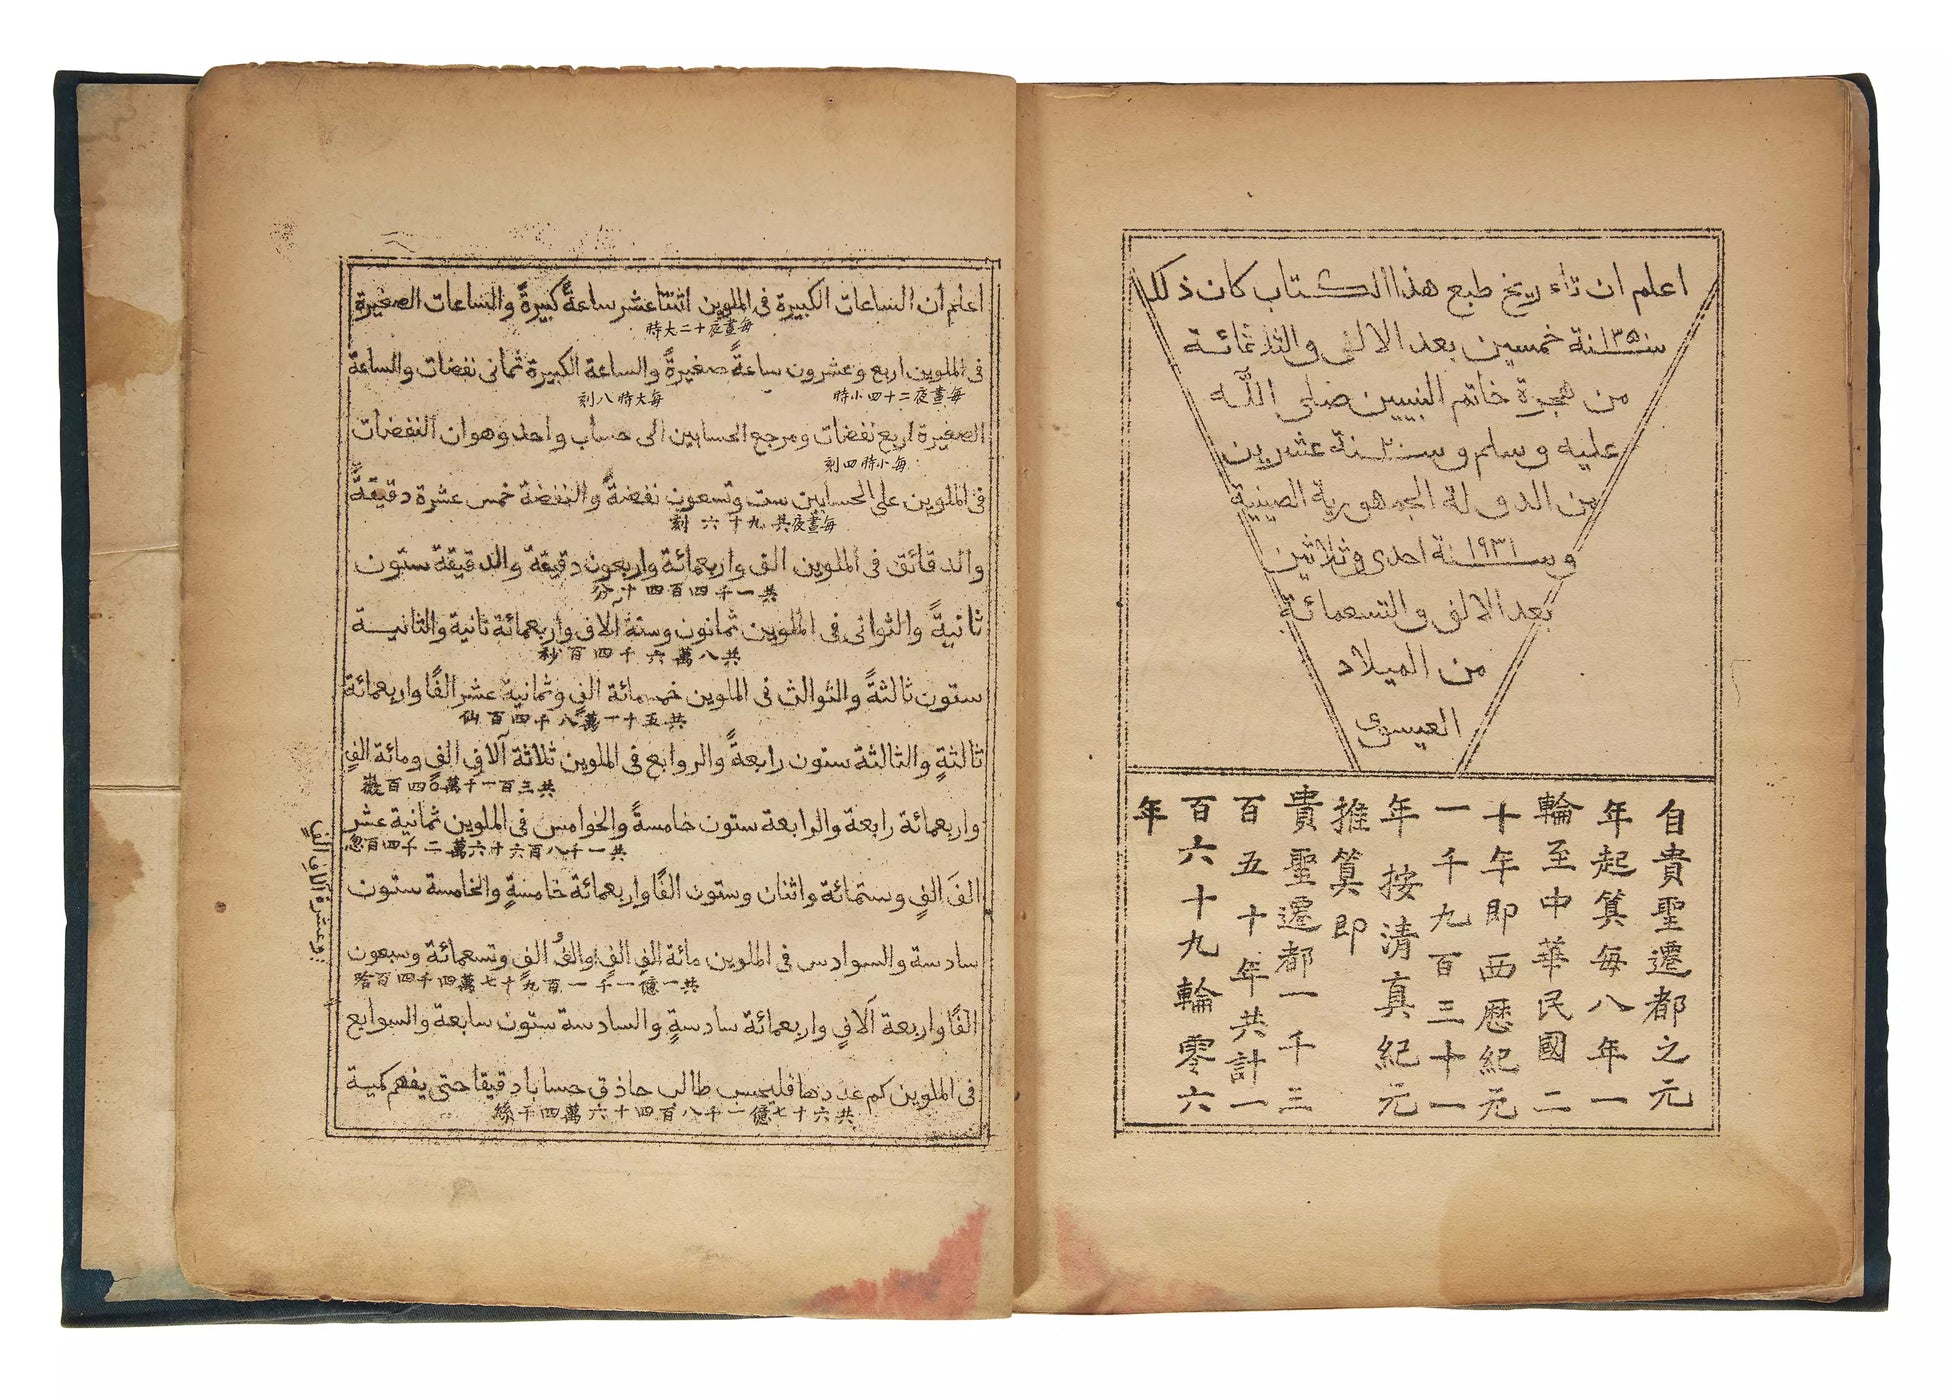 اعلم ان تاءريخ طبع هذا الكتاب كان ذلك
سنة ١٣٥٠ خمسين بعد الالف والثلاثمائة
من هجرة خاتم النبيين صلى الله
عليه وسلم وسنة ٢٠ عشرين
من الدولة الجمهورية الصينية
وسنة ١٩٣١ احدى وثلاثين
بعد الالف والتسعمائة
من الميلاد
العيسوى
自貴聖遷都之元
年起算每八年一
輪至中華民國二
十年即西歷紀元
一千九百三十一
年按清真紀元
推算即
貴聖遷都一千三
百五十年共計一
百六十九輪零六
年
اعلم ان الساعات الكبيرة فى الملوين اثنتا عشر ساعةً كبيرةً والساعات الصغيرة
每晝夜十二大時
فى الملوين اربع وعشرون ساعةً صغيرةً والساعة الكبيرة ثمانى نفضات والساعة
每晝夜二十四小時 每大時八刻
الصغيرة اربع نفضات ومرجع الحسابين الى حساب واحد وهو ان النفضات
每小時四刻
فى الملوين على الحسابين ست وتسعون نفضةً والنفضة خمس عشرة دقيقةً
每晝夜共九十六刻
والدقائق فى الملوين الف واربعمائة واربعون دقيقة والدقيقة ستون
共一千四百四十分
ثانيةً والثوانى فى الملوين ثمانون وستة آلاف واربعمائة ثانية والثانية
共八萬六千四百秒
ستون ثالثةً والثوالث فى الملوين خمسمائة الفٍ وثمانية عشر الفًا واربعمائة
共五十一萬八千四百仙
ثالثةٍ والثالثة ستون رابعةً والروابع فى الملوين ثلاثة آلافِ الفٍ ومائة الفٍ
共三百一十萬〇四百微
واربعمائة رابعة والرابعة ستون خامسةً والخوامس فى الملوين ثمانية عشر
共一千八百六十六萬二千四百忽
الفَ الفٍ وستمائة واثنان وستون الفًا واربعمائة خامسةٍ والخامسة ستون
سادسة والسوادس فى الملوين مائة الفِ الفٍ والفُ الفٍ وتسعمائة وسبعون
共一億一千一百九十七萬四千四百哈
الفًا واربعة آلافٍ واربعمائة سادسةٍ والسادسة ستون سابعة والسوابع
فى الملوين كم عددها فليحسب طالب حاذق حسابا دقيقا حتى يفهم كمية
共六十七億一千八百四十六萬四千絲
وعشرة آلاف الفٍ